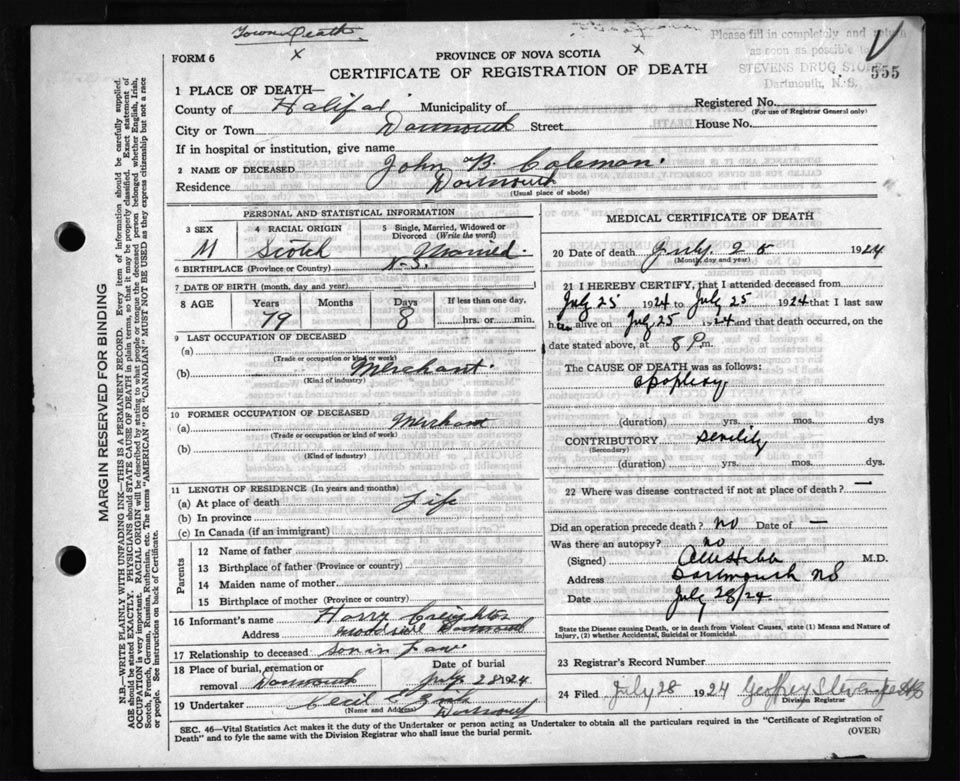 Town Death
Please fill in completely and return
as soon as possible to
STEVENS DRUG STORE
Dartmouth, N.S.
555
FORM 6
PROVINCE OF NOVA SCOTIA
CERTIFICATE OF REGISTRATION OF DEATH
1 PLACE OF DEATH—
County of Halifax Municipality of Registered No.
(For use of Registrar General only)
City or Town Dartmouth Street: House No.
If in hospital or institution, give name
2 NAME OF DECEASED John B. Coleman.
Residence Dartmouth
(Usual place of abode)
PERSONAL AND STATISTICAL INFORMATION
3 SEX 4 RACIAL ORIGIN 5 Single, Married, Widowed or Divorced (Write the word)
M Scotch Married.
6 BIRTHPLACE (Province or Country) N.S.
7 DATE OF BIRTH (month, day and year)
8 AGE Years Months Days If less than one day,
79 8 hrs. or min.
9 LAST OCCUPATION OF DECEASED
(a)
(Trade or occupation or kind or work)
(b) Merchant.
(Kind of industry)
10 FORMER OCCUPATION OF DECEASED
(a) Merchant
(Trade or occupation or kind of work)
(b)
(Kind of industry)
11 LENGTH OF RESIDENCE (In years and months)
(a) At place of death Life
(b) In province
(c) In Canada (if an immigrant)
Parents
12 Name of father
13 Birthplace of father (Province or country)
14 Maiden name of mother
15 Birthplace of mother (Province or country)
16 Informant's name Harry Creighton
Address Dartmouth
17 Relationship to deceased son in Law
18 Place of burial, cremation or removal Dartmouth Date of burial July 28 1924
19 Undertaker Cecil E. Zink
(Name and Address) Dartmouth
MEDICAL CERTIFICATE OF DEATH
20 Date of death July 25 1924
(Month, day and year)
21 I HEREBY CERTIFY, that I attended deceased from
July 25 1924 to July 25 1924 that I last saw
him alive on July 25 1924 and that death occurred, on the
date stated above, at 8 P.m.
The CAUSE OF DEATH was as follows:
apoplexy
(duration) yrs. mos. days
CONTRIBUTORY senility
(Secondary)
(duration) yrs. mos. dys.
22 Where was disease contracted if not at place of death? —
Did an operation precede death? no Date of —
Was there an autopsy? no
(Signed) M.D.
Address Dartmouth NS
Date July 28/24
State the Disease causing Death, or in death from Violent Causes, state (1) Means and Nature of
Injury, (2) whether Accidental, Suicidal or Homicidal.
23 Registrar's Record Number
24 Filed July 28 1924 Geoffrey Stevens
Division Registrar
SEC. 46—Vital Statistics Act makes it the duty of the Undertaker or person acting as Undertaker to obtain all the particulars required in the "Certificate of Registration of
Death" and to fyle the same with the Division Registrar who shall issue the burial permit.
(OVER)
MARGIN RESERVED FOR BINDING
N.B.—WRITE PLAINLY WITH UNFADING INK—THIS IS A PERMANENT RECORD. Every item of information should be carefully supplied.
AGE should be stated EXACTLY. PHYSICIANS should STATE CAUSE OF DEATH in plain terms, so that it may be properly classified. Exact statement of
OCCUPATION is very important. RACIAL ORIGIN will be described by stating to what people or tongue the deceased person belonged whether English, Irish,
Scotch, French, German, Russian, Ruthenian, etc. The terms "AMERICAN" OR "CANADIAN" MUST NOT BE USED as they express citizenship but not a race
or people. See instructions on back of Certificate.